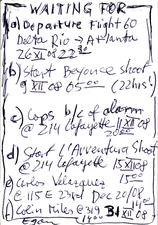 WAITING FOR
a) Departure Flight 60
Delta Rio → Atlanta
26 XI 08 22
b) Start Beyonce Shoot
9 XII 08 05 00 (22hrs!)
c) Cops b/c of alarm
@ 214 Lafayette 11 XII 08
20 00
d) Start L'Avventura Shoot
@ 214 Lafayette 15 XII 08
15 00
e) Carlos Velazquez
@ 115 E 23rd Dec 20/08
f) Colin Miles @ 319
14 XII 08